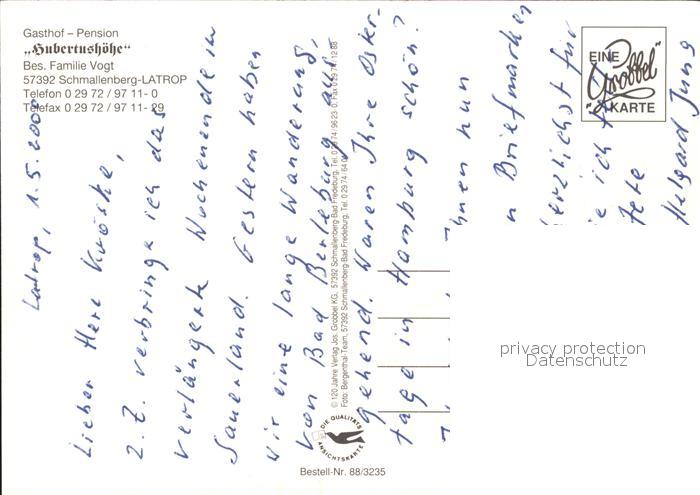 Gasthof – Pension
„Hubertushöhe"
Bes. Familie Vogt
57392 Schmallenberg-LATROP
Telefon 0 29 72 / 97 11- 0
Telefax 0 29 72 / 97 11- 29
EINE
"Grobbel"
KARTE
Latrop, 1.5.2000
Lieber Herr
z.Z. verbringe ich das
verlängerte Wochenende im
Sauerland. Gestern haben
wir eine lange Wanderung,
von Bad Berleburg aus,
gehend. Waren Ihre Oster-
tage in Hamburg schön?
Ihnen nun
n Briefmarken
erzlichst für
e ich
tete
Helgard Jung
© 120 Jahre Verlag Jos. Grobbel KG, 57392 Schmallenberg-Bad Fredeburg, Tel. 0 29 74 - 96 23 - 0
Foto: Bergenthal-Team, 57392 Schmallenberg-Bad Fredeburg, Tel. 0 29 74 / 64
DIE QUALITÄTS
ANSICHTSKARTE
Bestell-Nr. 88/3235
privacy protection
Datenschutz